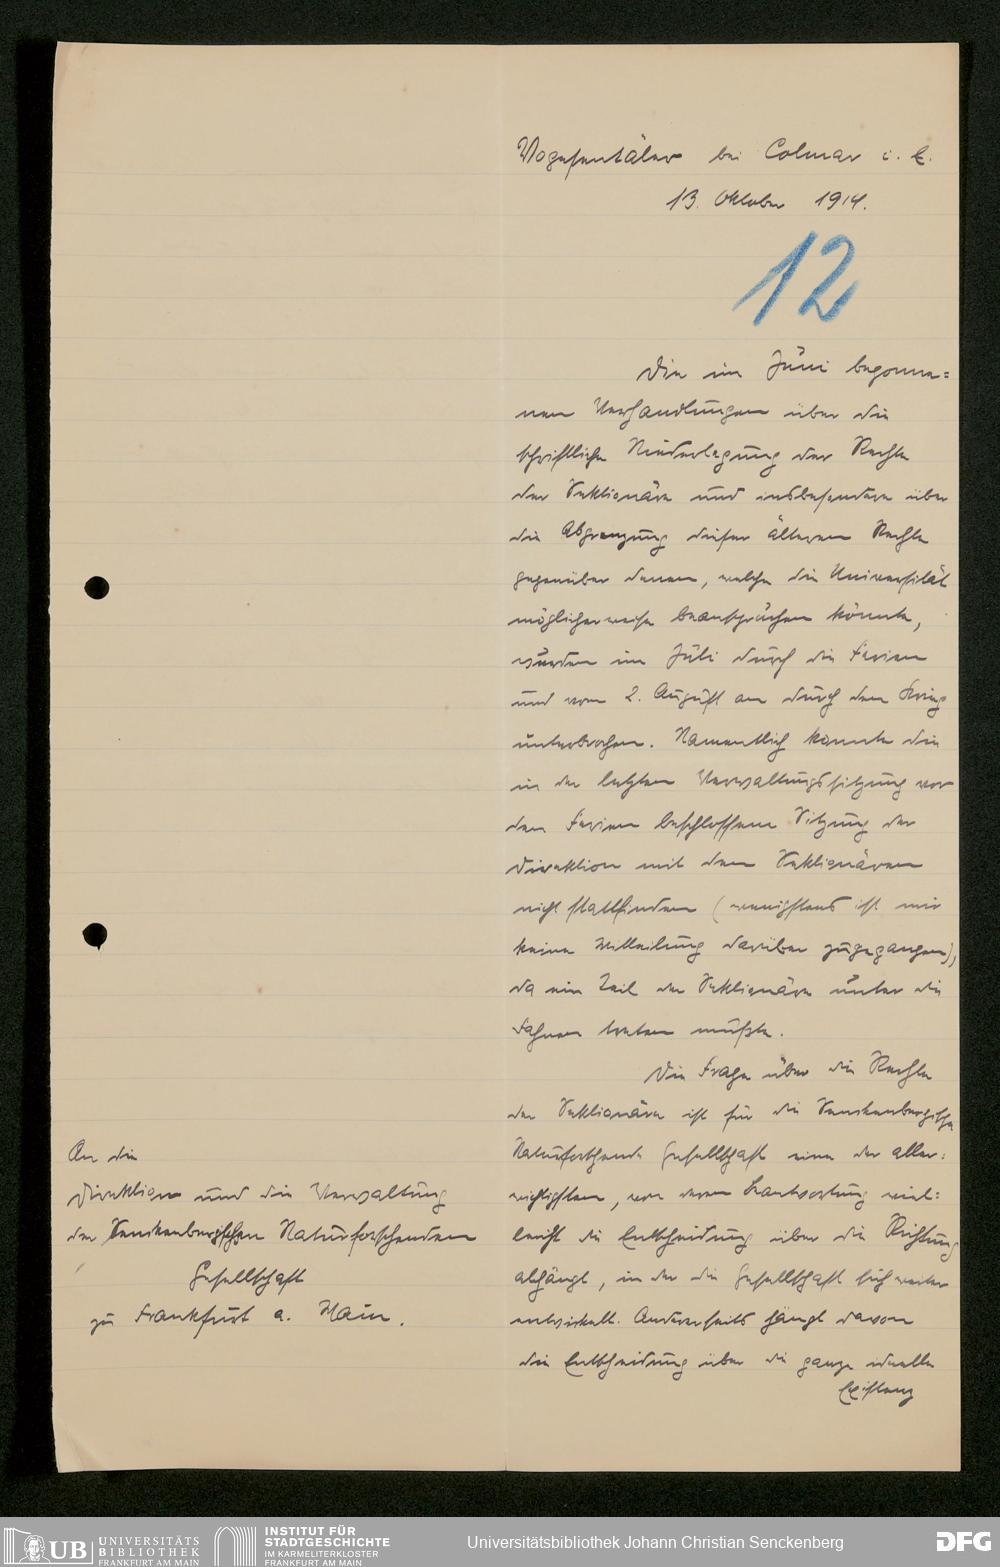 Vogesentäler bei Colmar i. E.
13. Oktober 1914.
12
Die im Juni begonne=
nen Verhandlungen über die
schriftliche Niederlegung der Rechte
der Sektionäre und insbesondere über
die Abgrenzung dieser älteren Rechte
gegenüber denen, welche die Universität
möglicherweise beanspruchen könnte,
wurden im Juli durch die Ferien
und vom 2. August an durch den Krieg
unterbrochen. Namentlich konnte die
in der letzten Verwaltungssitzung vor
den Ferien beschlossene Sitzung der
Direktion mit den Sektionären
nicht stattfinden (wenigstens ist mir
keine Mitteilung darüber zugegangen),
da ein Teil der Sektionäre unter die
Fahnen treten mußte.
Die Frage über die Rechte
der Sektionäre ist für die Senckenbergische
Naturforschende Gesellschaft eine der aller=
wichtigsten, von deren Beantwortung viel=
leicht die Entscheidung über die Richtung
abhängt, in der die Gesellschaft sich weiter
entwickelt. Andererseits hängt davon
die Entscheidung über die ganze ideelle
Existenz
An die
Direktion und die Verwaltung
der Senckenbergischen Naturforschenden
Gesellschaft
zu Frankfurt a. Main.
UB UNIVERSITÄTS
BIBLIOTHEK
FRANKFURT AM MAIN
INSTITUT FÜR
STADTGESCHICHTE
IM KARMELITERKLOSTER
FRANKFURT AM MAIN
Universitätsbibliothek Johann Christian Senckenberg
DFG